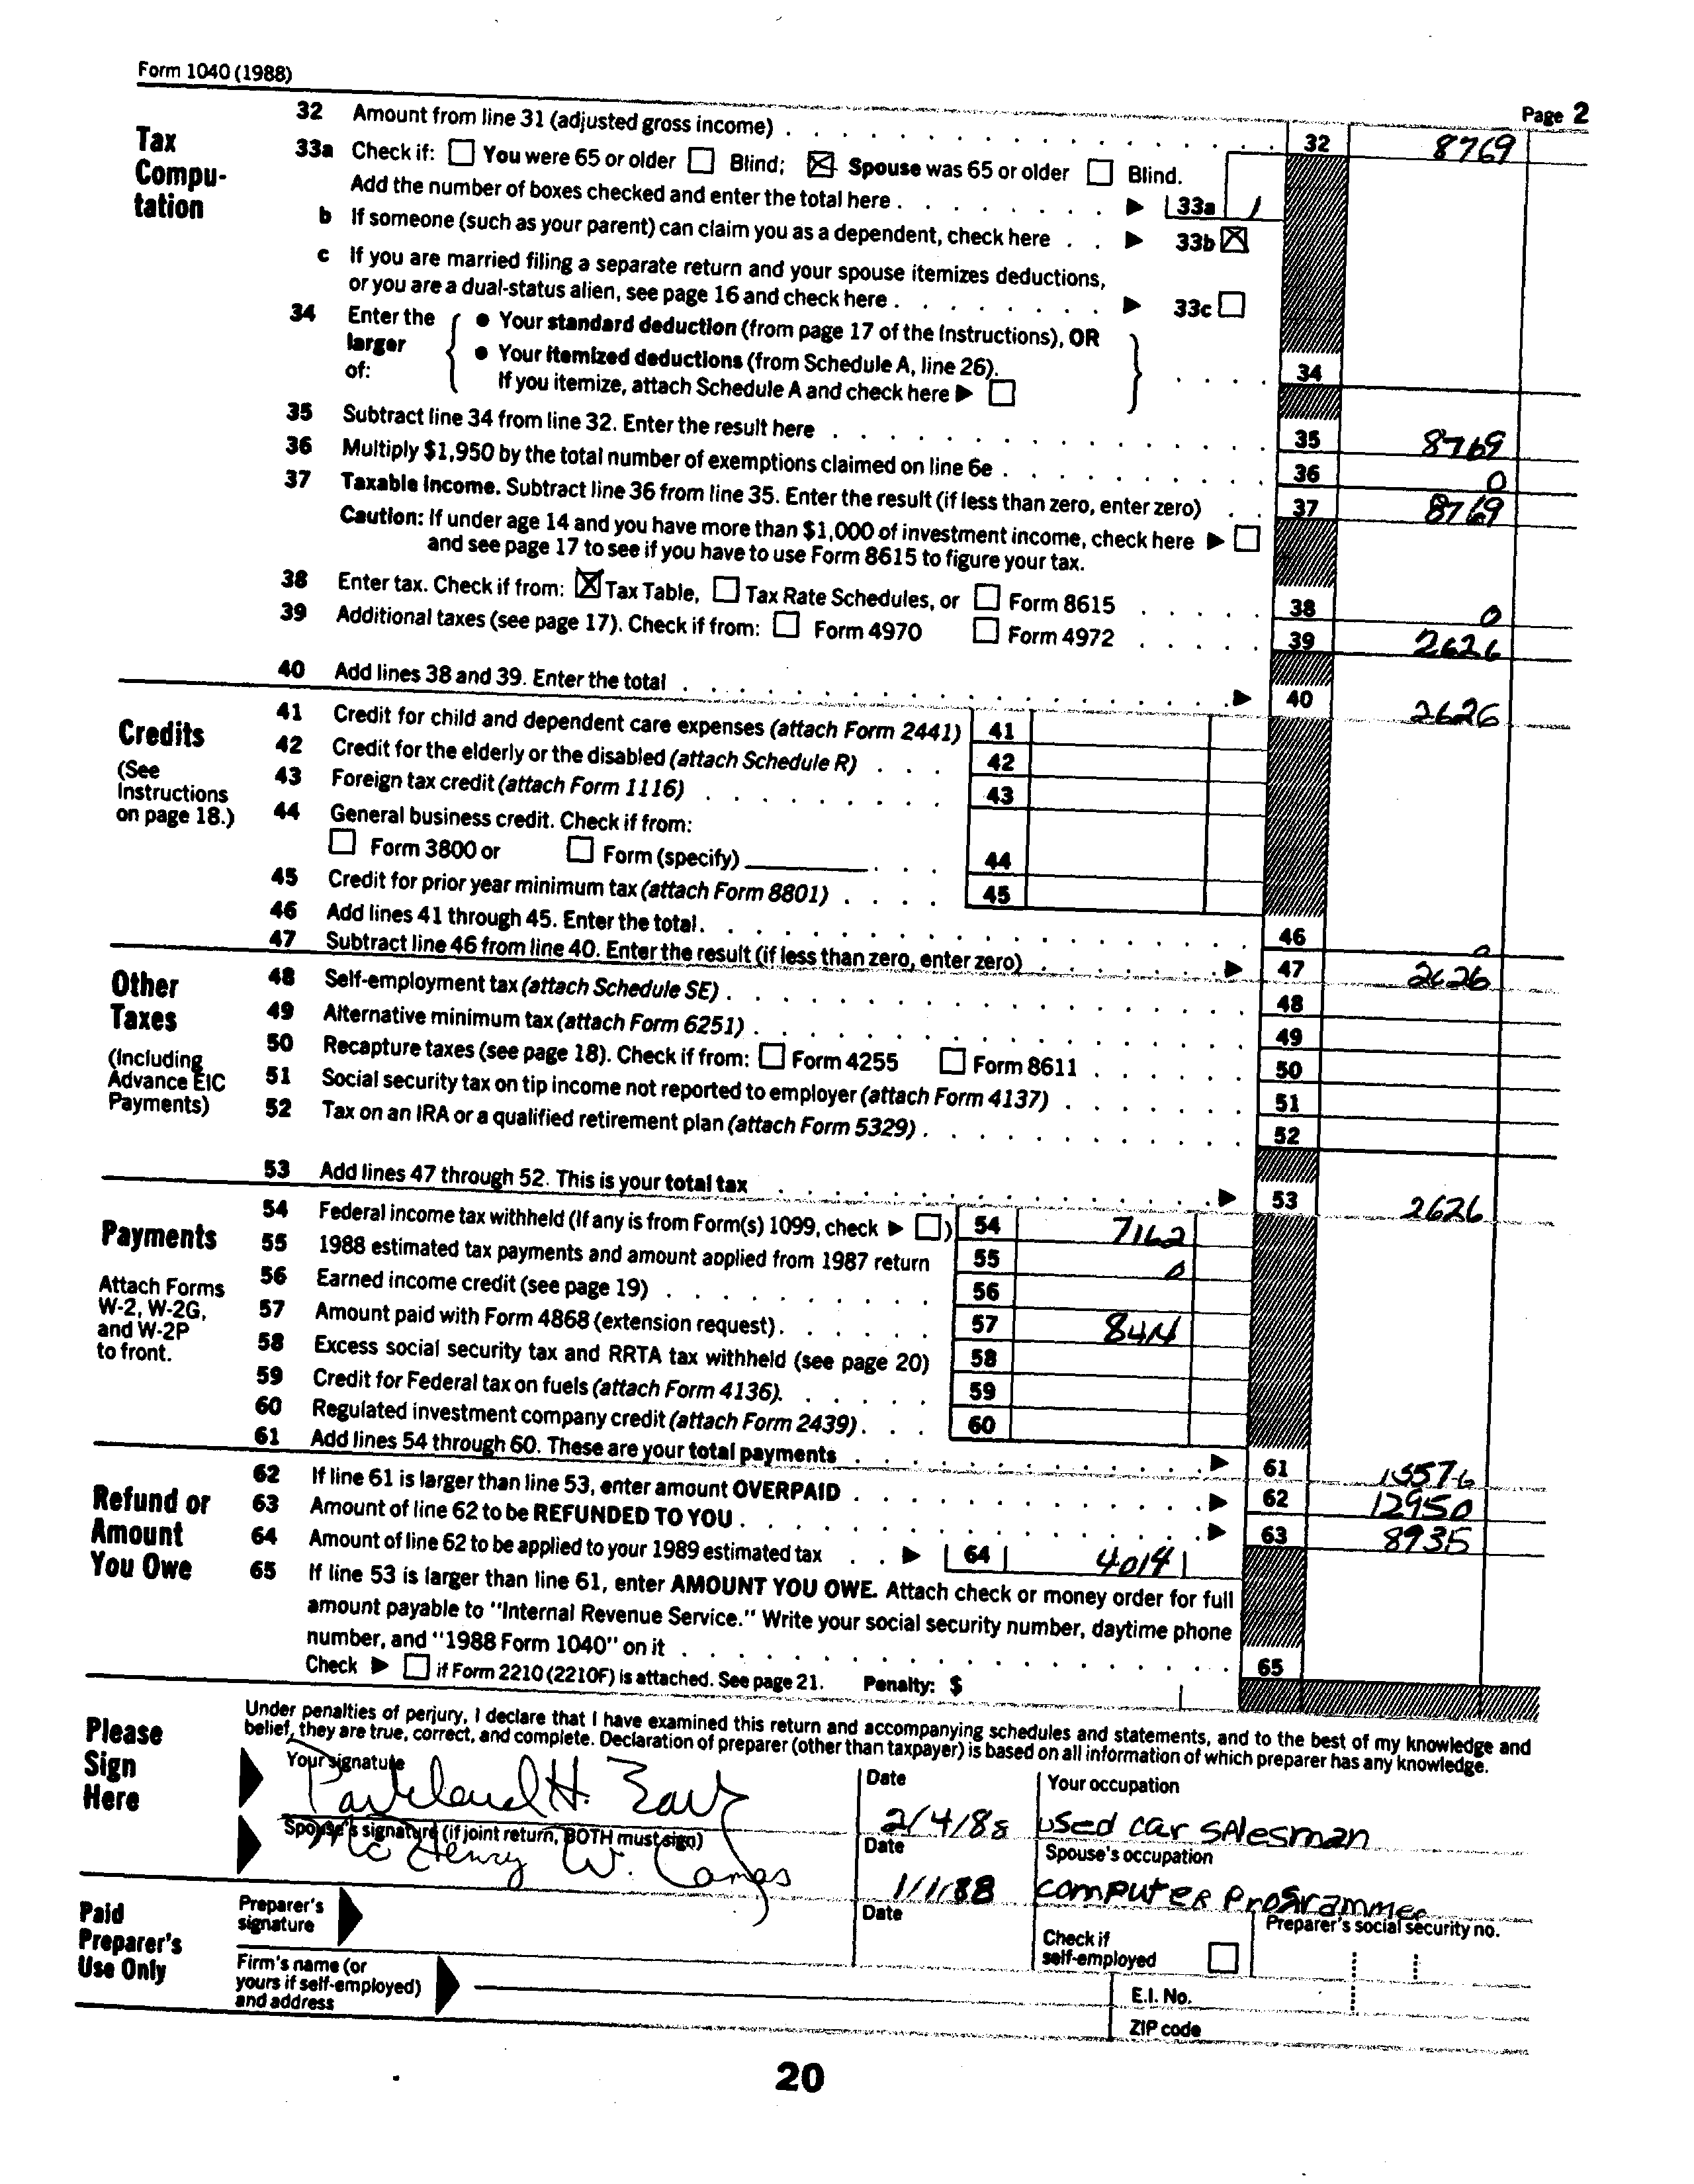 Form 1040 (1988)
Page 2
Tax Compu-tation
32 Amount from line 31 (adjusted gross income) 32 8769
33a Check if: You were 65 or older Blind; Spouse was 65 or older Blind.
Add the number of boxes checked and enter the total here 33a 1
b If someone (such as your parent) can claim you as a dependent, check here 33b
c If you are married filing a separate return and your spouse itemizes deductions,
or you are a dual-status alien, see page 16 and check here 33c
34 Enter the larger of:
• Your standard deduction (from page 17 of the Instructions), OR
• Your itemized deductions (from Schedule A, line 26).
If you itemize, attach Schedule A and check here 34
35 Subtract line 34 from line 32. Enter the result here 35 8769
36 Multiply $1,950 by the total number of exemptions claimed on line 6e 36 0
37 Taxable income. Subtract line 36 from line 35. Enter the result (if less than zero, enter zero) 37 8769
Caution: If under age 14 and you have more than $1,000 of investment income, check here
and see page 17 to see if you have to use Form 8615 to figure your tax.
38 Enter tax. Check if from: Tax Table, Tax Rate Schedules, or Form 8615 38 0
39 Additional taxes (see page 17). Check if from: Form 4970 Form 4972 39 2626
40 Add lines 38 and 39. Enter the total 40 2626
Credits
(See Instructions on page 18.)
41 Credit for child and dependent care expenses (attach Form 2441) 41
42 Credit for the elderly or the disabled (attach Schedule R) 42
43 Foreign tax credit (attach Form 1116) 43
44 General business credit. Check if from:
Form 3800 or Form (specify) 44
45 Credit for prior year minimum tax (attach Form 8801) 45
46 Add lines 41 through 45. Enter the total. 46 0
47 Subtract line 46 from line 40. Enter the result (if less than zero, enter zero) 47 2626
Other Taxes
(Including Advance EIC Payments)
48 Self-employment tax (attach Schedule SE) 48
49 Alternative minimum tax (attach Form 6251) 49
50 Recapture taxes (see page 18). Check if from: Form 4255 Form 8611 50
51 Social security tax on tip income not reported to employer (attach Form 4137) 51
52 Tax on an IRA or a qualified retirement plan (attach Form 5329) 52
53 Add lines 47 through 52. This is your total tax 53 2626
Payments
Attach Forms W-2, W-2G, and W-2P to front.
54 Federal income tax withheld (If any is from Form(s) 1099, check ) 54 7162
55 1988 estimated tax payments and amount applied from 1987 return 55 0
56 Earned income credit (see page 19) 56
57 Amount paid with Form 4868 (extension request) 57 8414
58 Excess social security tax and RRTA tax withheld (see page 20) 58
59 Credit for Federal tax on fuels (attach Form 4136). 59
60 Regulated investment company credit (attach Form 2439) 60
61 Add lines 54 through 60. These are your total payments 61 15576
Refund or Amount You Owe
62 If line 61 is larger than line 53, enter amount OVERPAID 62 12950
63 Amount of line 62 to be REFUNDED TO YOU 63 8935
64 Amount of line 62 to be applied to your 1989 estimated tax 64 4014
65 If line 53 is larger than line 61, enter AMOUNT YOU OWE. Attach check or money order for full
amount payable to "Internal Revenue Service." Write your social security number, daytime phone
number, and "1988 Form 1040" on it 65
Check if Form 2210 (2210F) is attached. See page 21. Penalty: $
Please Sign Here
Under penalties of perjury, I declare that I have examined this return and accompanying schedules and statements, and to the best of my knowledge and
belief, they are true, correct, and complete. Declaration of preparer (other than taxpayer) is based on all information of which preparer has any knowledge.
Your signature Date Your occupation
H. 2/4/88 used car salesman
Spouse's signature (if joint return, BOTH must sign) Date Spouse's occupation
McHenry W. 1/1/88 computer programmer
Paid Preparer's Use Only
Preparer's signature Date Check if self-employed Preparer's social security no.
Firm's name (or yours if self-employed) and address E.I. No.
ZIP code
20